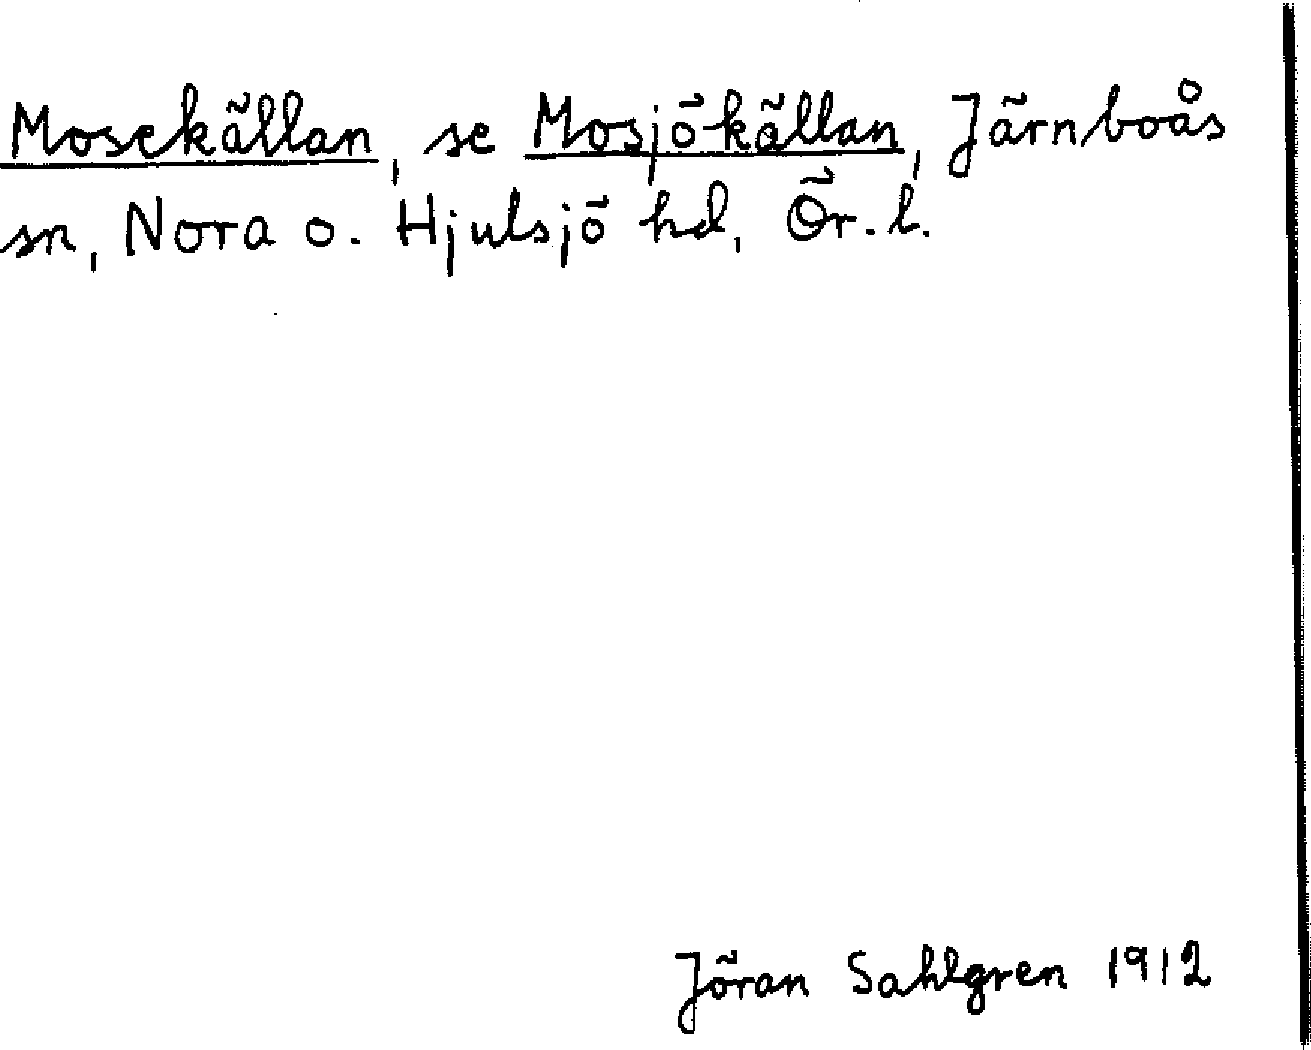 Mosekällan, se Mosjökällan, Järnboås
sn, Nora o. Hjulsjö hd, Ör. l.
Jöran Sahlgren 1912